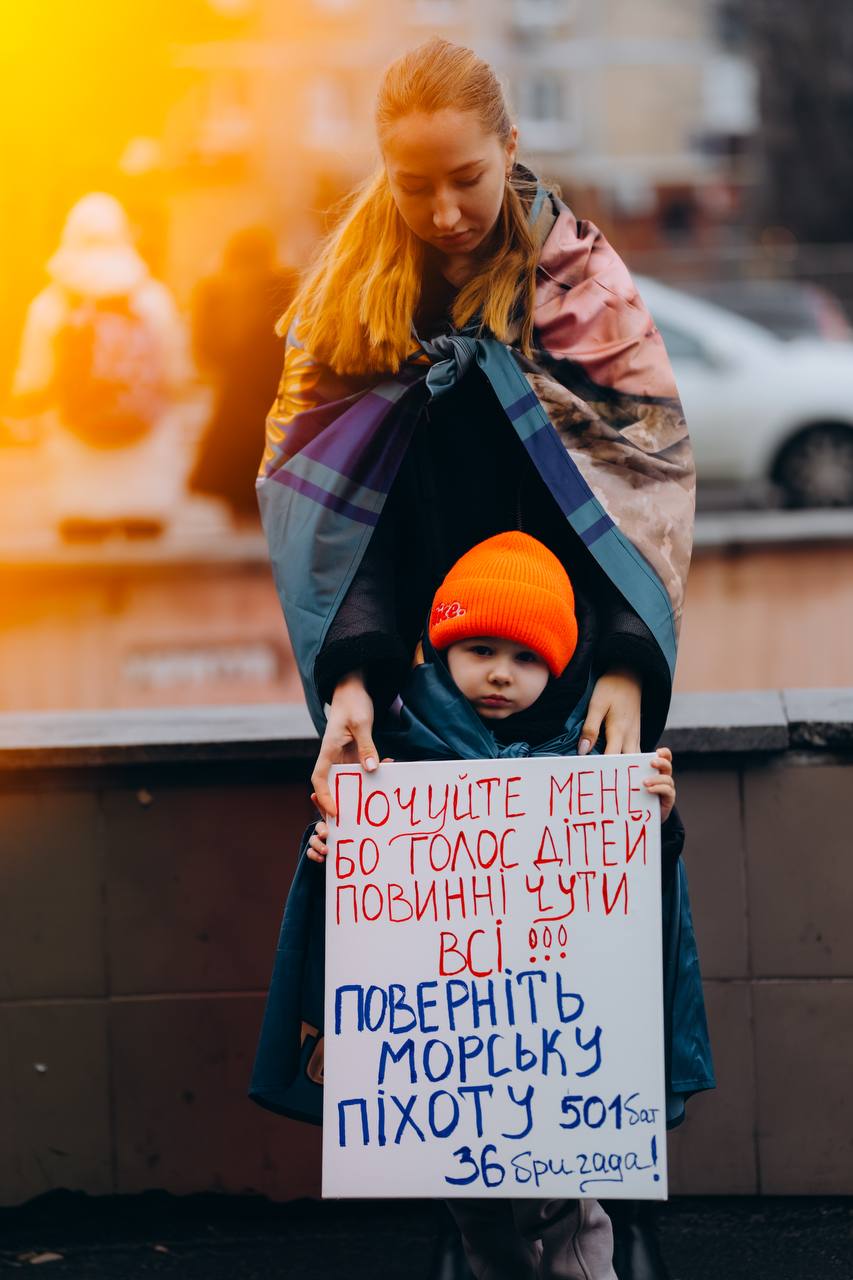 Почуйте мене,
бо голос дітей
повинні чути
всі !!!
Поверніть
морську
піхоту 501 бат
36 бригада!